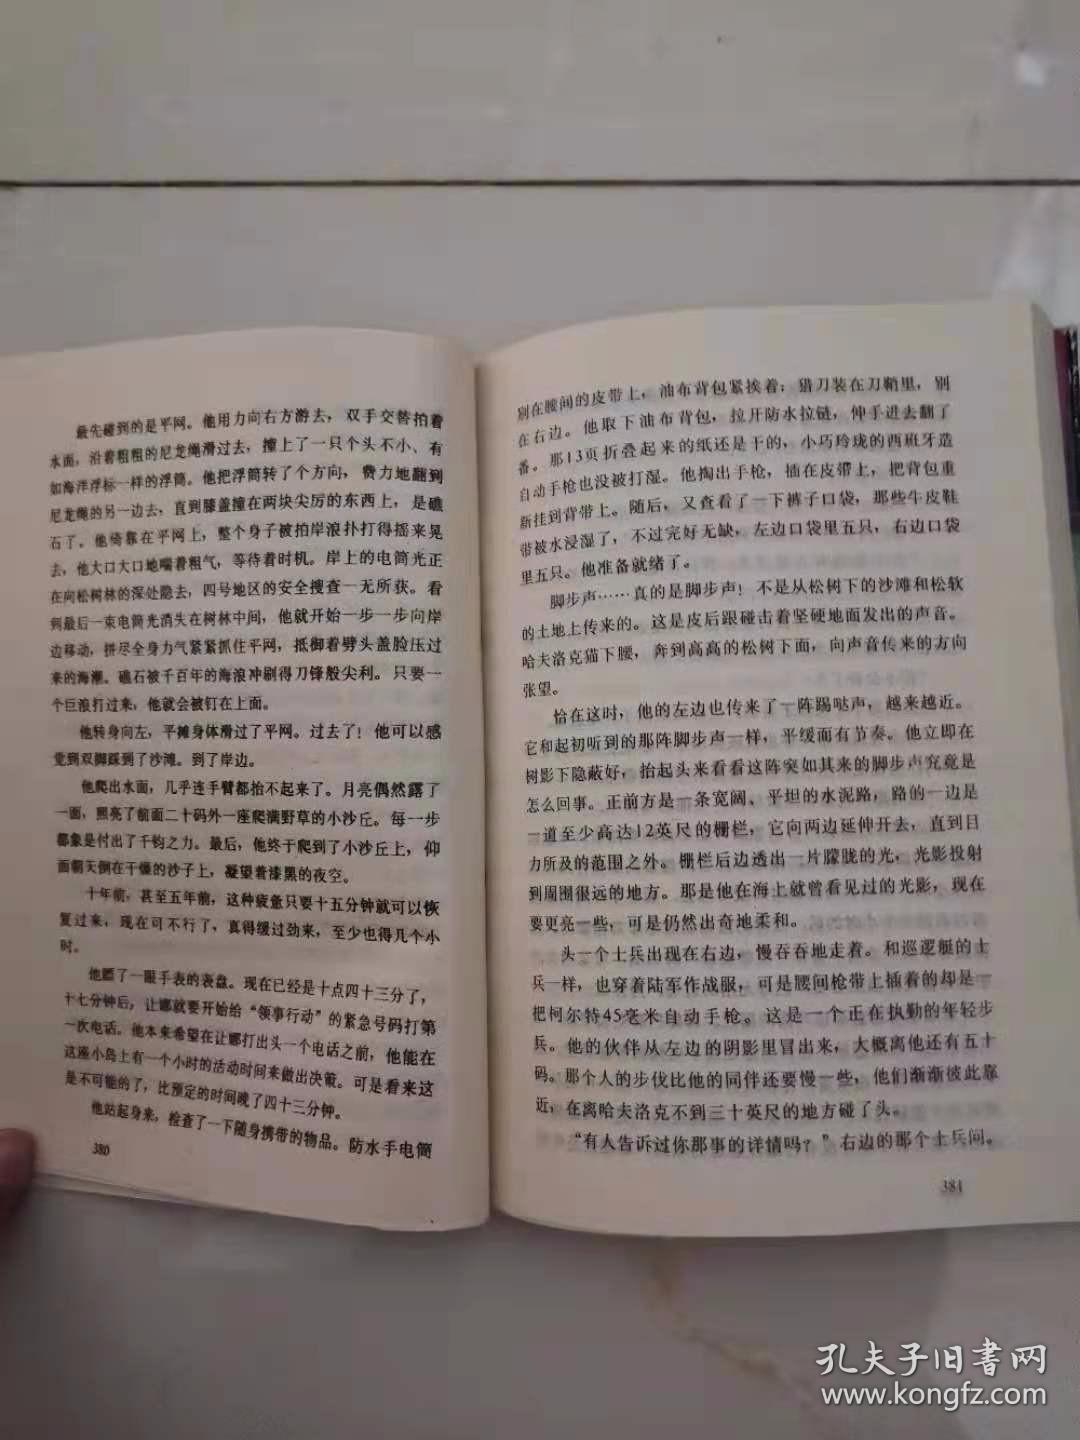 最先碰到的是平网。他用力向右方游去，双手交替拍着
水面，沿着粗粗的尼龙绳滑过去，撞上了一只个头不小、有
如海洋浮标一样的浮筒。他把浮筒转了个方向，费力地翻到
尼龙绳的另一边去，直到膝盖撞在两块尖厉的东西上，是礁
石了。他倚靠在平网上，整个身子被拍岸浪扑打得摇来晃
去，他大口大口地喘着粗气，等待着时机。岸上的电筒光正
在向松树林的深处隐去，四号地区的安全搜查一无所获。看
到最后一束电筒光消失在树林中间，他就开始一步一步向岸
边移动，拼尽全身力气紧紧抓住平网，抵御着劈头盖脸压过
来的海潮。礁石被千百年的海浪冲刷得刀锋般尖利。只要一
个巨浪打过来，他就会被钉在上面。
他转身向左，平摊身体滑过了平网。过去了！他可以感
觉到双脚踩到了沙滩。到了岸边。
他爬出水面，几乎连手臂都抬不起来了。月亮偶然露了
一面，照亮了前面二十码外一座爬满野草的小沙丘。每一步
都象是付出了千钧之力。最后，他终于爬到了小沙丘上，仰
面朝天倒在干燥的沙子上，凝望着漆黑的夜空。
十年前，甚至五年前，这种疲惫只要十五分钟就可以恢
复过来，现在可不行了，真得缓过劲来，至少也得几个小
时。
他瞄了一眼手表的表盘。现在已经是十点四十三分了，
十七分钟后，让娜就要开始给“领事行动”的紧急号码打第
一次电话。他本来希望在让娜打出头一个电话之前，他能在
这座小岛上有一个小时的活动时间来做出决策。可是看来这
是不可能的了，比预定的时间晚了四十三分钟。
他站起身来，检查了一下随身携带的物品。防水手电筒
380
别在腰间的皮带上，油布背包紧挨着；猎刀装在刀鞘里，别
在右边。他取下油布背包，拉开防水拉链，伸手进去翻了
番。那13页折叠起来的纸还是干的，小巧玲珑的西班牙造
自动手枪也没被打湿。他掏出手枪，插在皮带上，把背包重
新挂到背带上。随后，又查看了一下裤子口袋，那些牛皮鞋
带被水浸湿了，不过完好无缺，左边口袋里五只，右边口袋
里五只。他准备就绪了。
脚步声……真的是脚步声！不是从松树下的沙滩和松软
的土地上传来的。这是皮后跟碰击着坚硬地面发出的声音。
哈夫洛克猫下腰，奔到高高的松树下面，向声音传来的方向
张望。
恰在这时，他的左边也传来了一阵踢哒声，越来越近。
它和起初听到的那阵脚步声一样，平缓而有节奏。他立即在
树影下隐蔽好，抬起头来看看这阵突如其来的脚步声究竟是
怎么回事。正前方是一条宽阔、平坦的水泥路，路的一边是
一道至少高达12英尺的栅栏，它向两边延伸开去，直到目
力所及的范围之外。栅栏后边透出一片朦胧的光，光影投射
到周围很远的地方。那是他在海上就曾看见过的光影，现在
要更亮一些，可是仍然出奇地柔和。
头一个士兵出现在右边，慢吞吞地走着。和巡逻艇的士
兵一样，也穿着陆军作战服，可是腰间枪带上插着的却是一
把柯尔特45毫米自动手枪。这是一个正在执勤的年轻步
兵。他的伙伴从左边的阴影里冒出来，大概离他还有五十
码。那个人的步伐比他的同伴还要慢一些，他们渐渐彼此靠
近，在离哈夫洛克不到三十英尺的地方碰了头。
“有人告诉过你那事的详情吗？”右边的那个士兵问。
381
孔夫子旧书网
www.kongfz.com